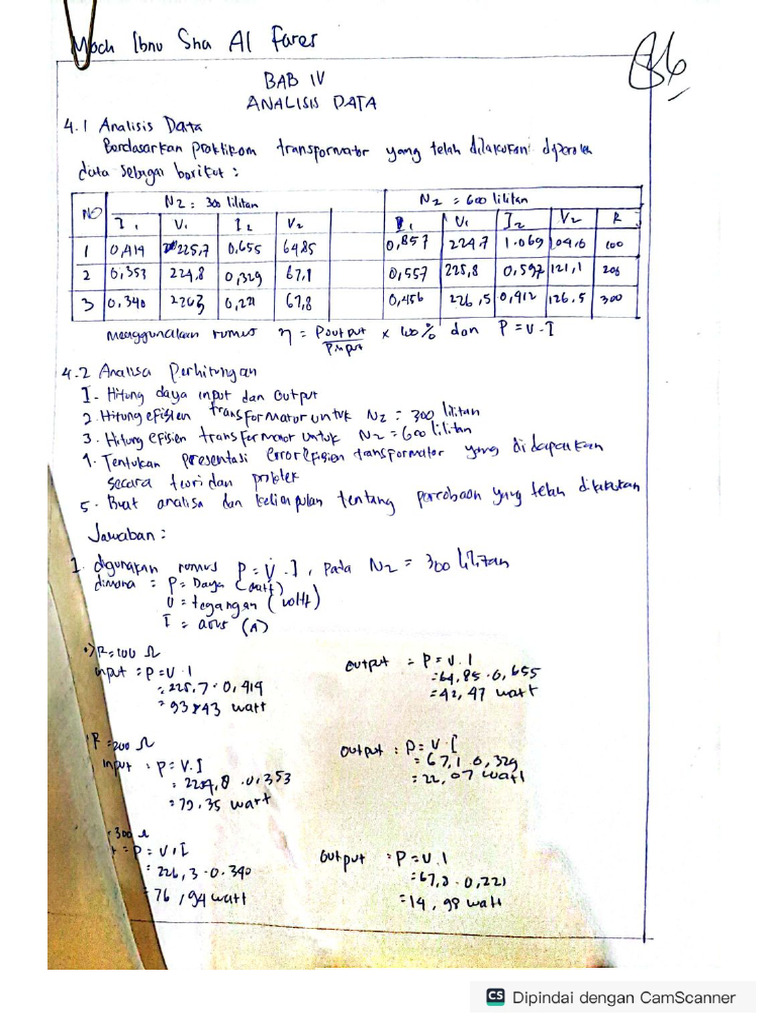 Moch Ibnu Sha Al Fares
86
BAB IV
ANALISIS DATA
4.1 Analisis Data
Berdasarkan praktikum transformator yang telah dilakukan diperoleh
data sebagai berikut:
NO N2 : 300 lilitan N2 = 600 lilitan
I1 V1 I2 V2 I1 V1 I2 V2 R
1 0,419 225,7 0.655 64,85 0,857 224.7 1.069 104,6 100
2 0,353 224,8 0,329 67,1 0,557 225,8 0,597 121,1 200
3 0.340 226,3 0,221 67,8 0,456 226,5 0,412 126.5 300
menggunakan rumus η = Poutput/Pinput x 100% dan P = V.I
4.2 Analisa Perhitungan
1. Hitung daya input dan output
2. Hitung efisien transformator untuk N2 = 300 lilitan
3. Hitung efisien transformator untuk N2 = 600 lilitan
4. Tentukan presentasi error efisien transformator yang didapatkan
secara teori dan praktek
5. Buat analisa dan kesimpulan tentang percobaan yang telah dilakukan
Jawaban :
1. digunakan rumus P = V . I , pada N2 = 300 lilitan
dimana : P = Daya (watt)
V = tegangan (volt)
I = arus (A)
•) R = 100 Ω
input : P = V . I output : P = V . I
= 225,7 . 0,419 = 64,85 . 0,655
= 93843 watt = 42,47 watt
R = 200 Ω
input : P = V.I output : P = V . I
= 224,8 . 0,353 = 67,1 . 0,329
= 79,35 watt = 22,07 watt
300 Ω
= P = V . I output : P = V . I
= 226,3 . 0.340 = 67,8 . 0,221
= 76,94 watt = 14,98 watt
CS Dipindai dengan CamScanner